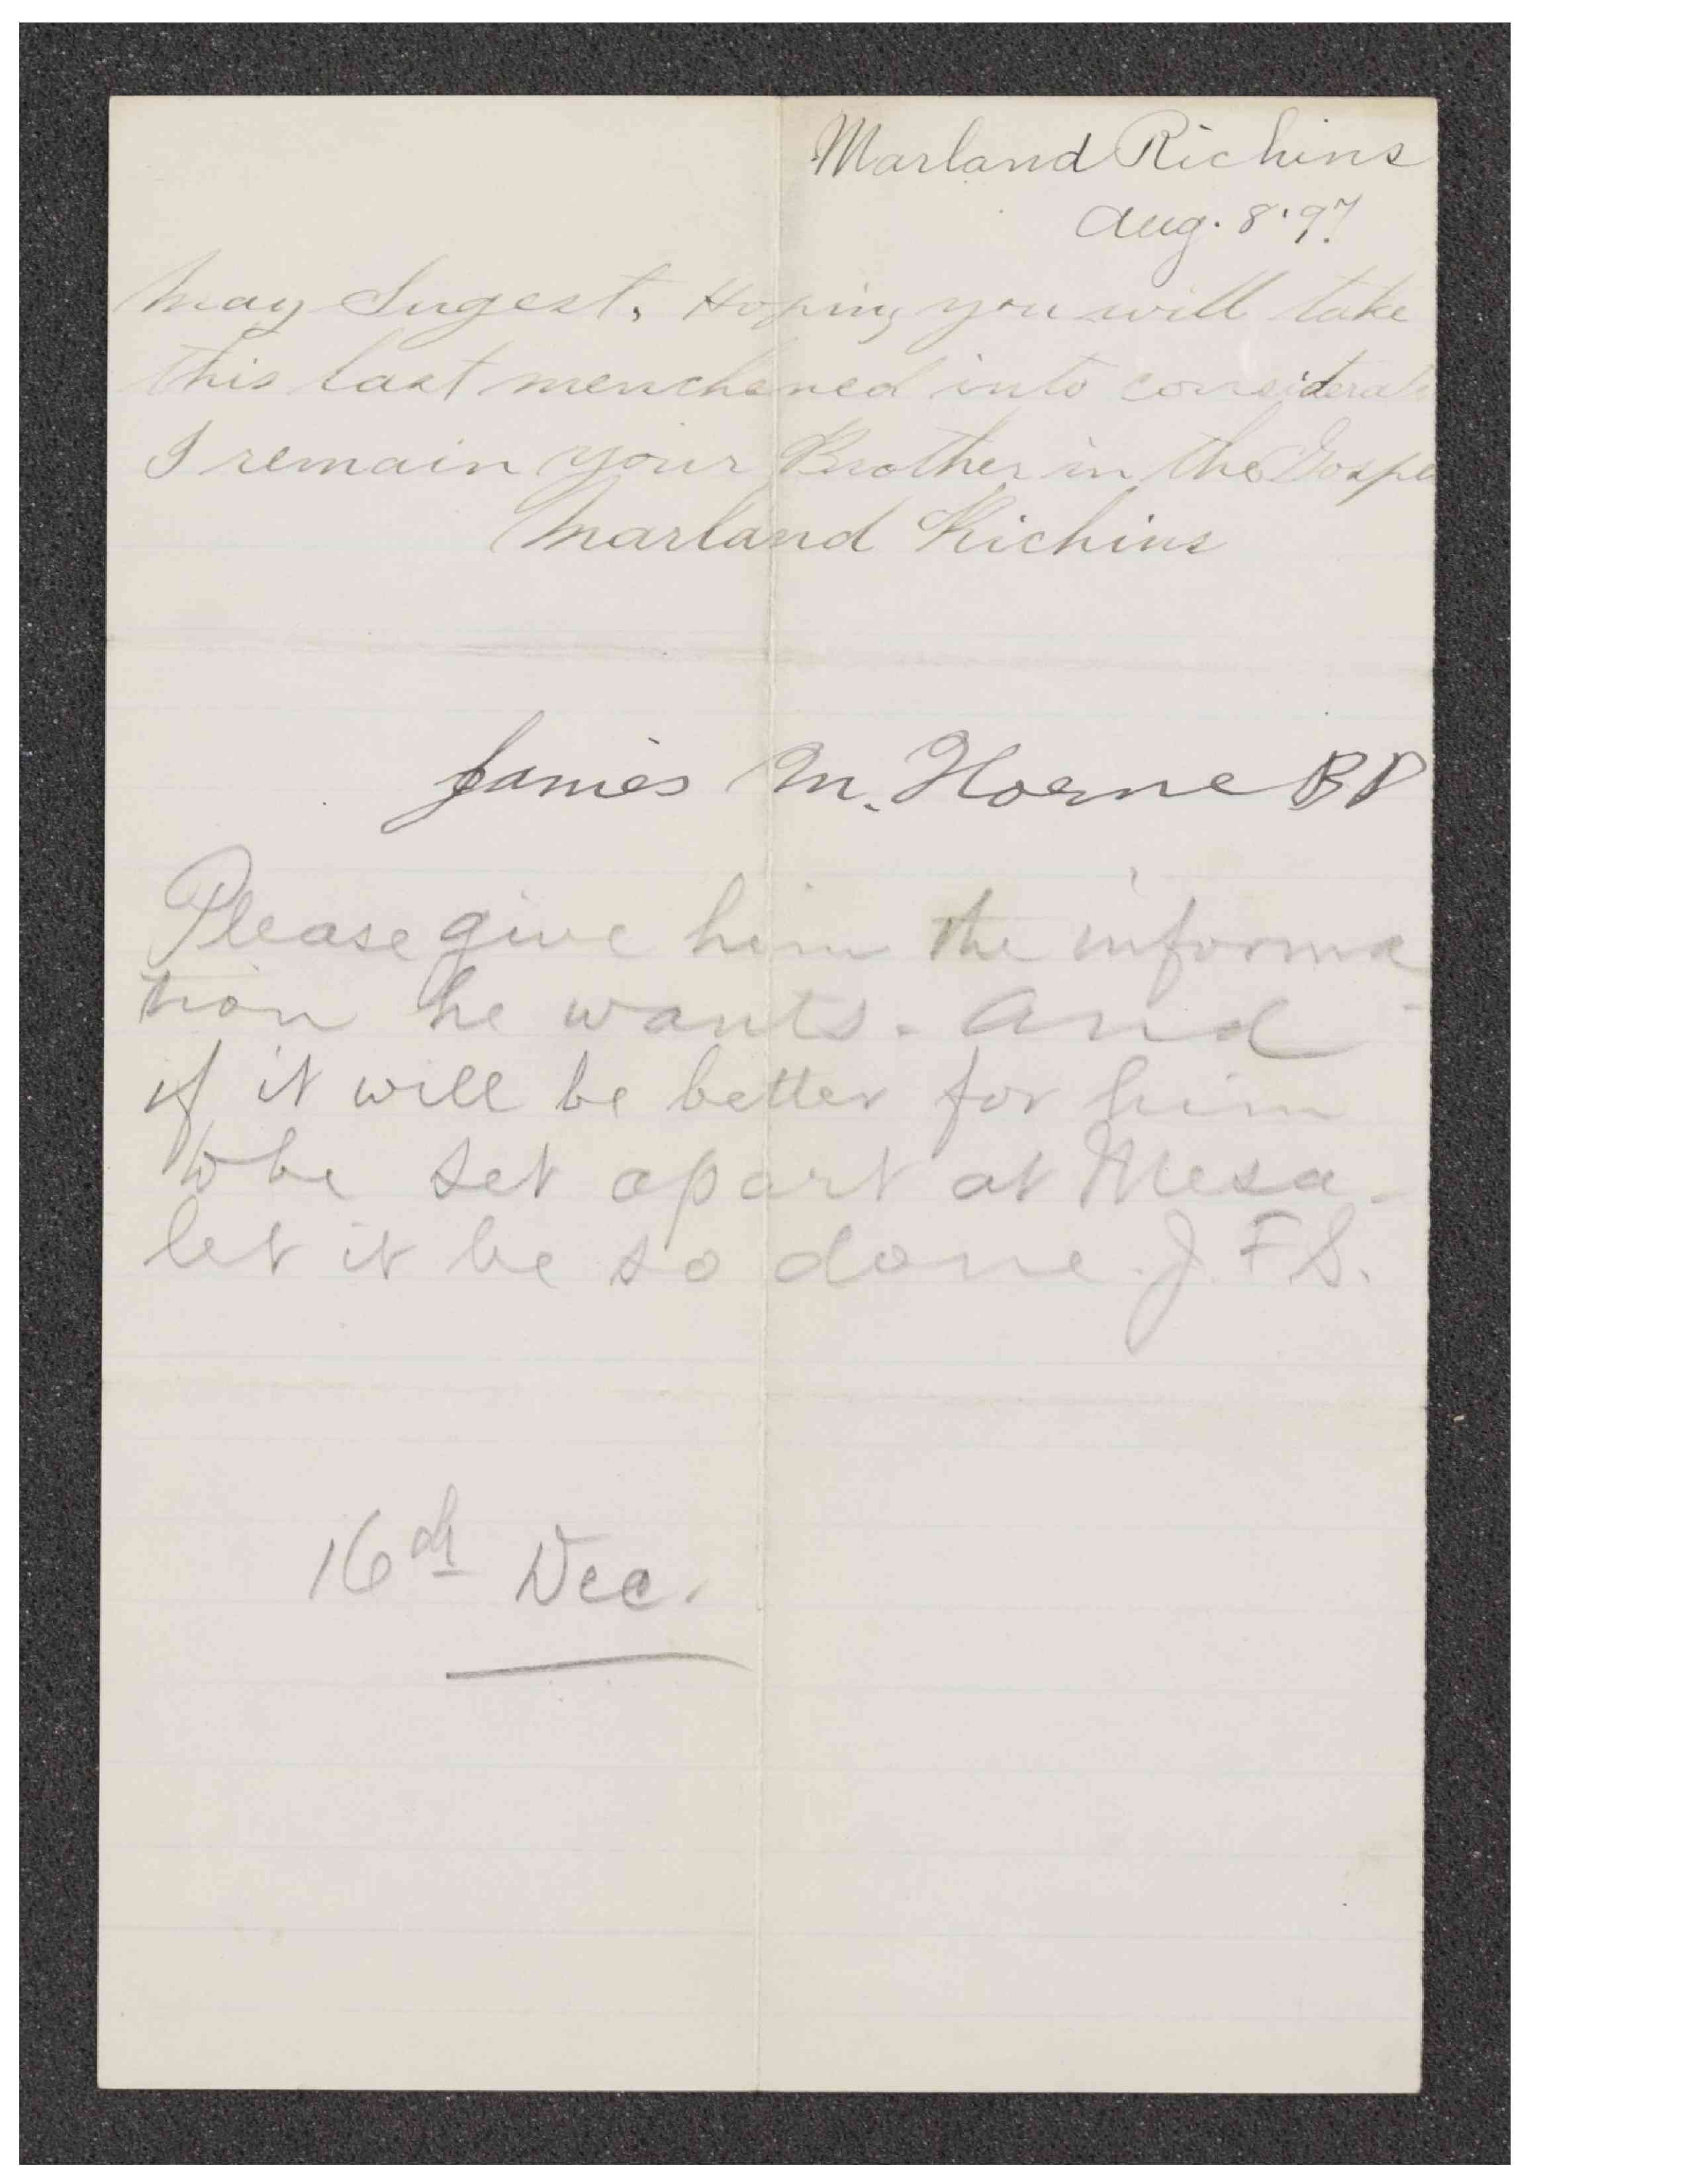 Marland Richins
Aug. 8 '97
may Sugest. Hoping you will take
this last menchened into considerati
I remain your Brother in the Gospel
Marland Richins
James M. Horne BP
Please give him the informa
tion he wants. and
if it will be better for him
to be set apart at Mesa -
let it be so done. J. F S.
16th Dec.